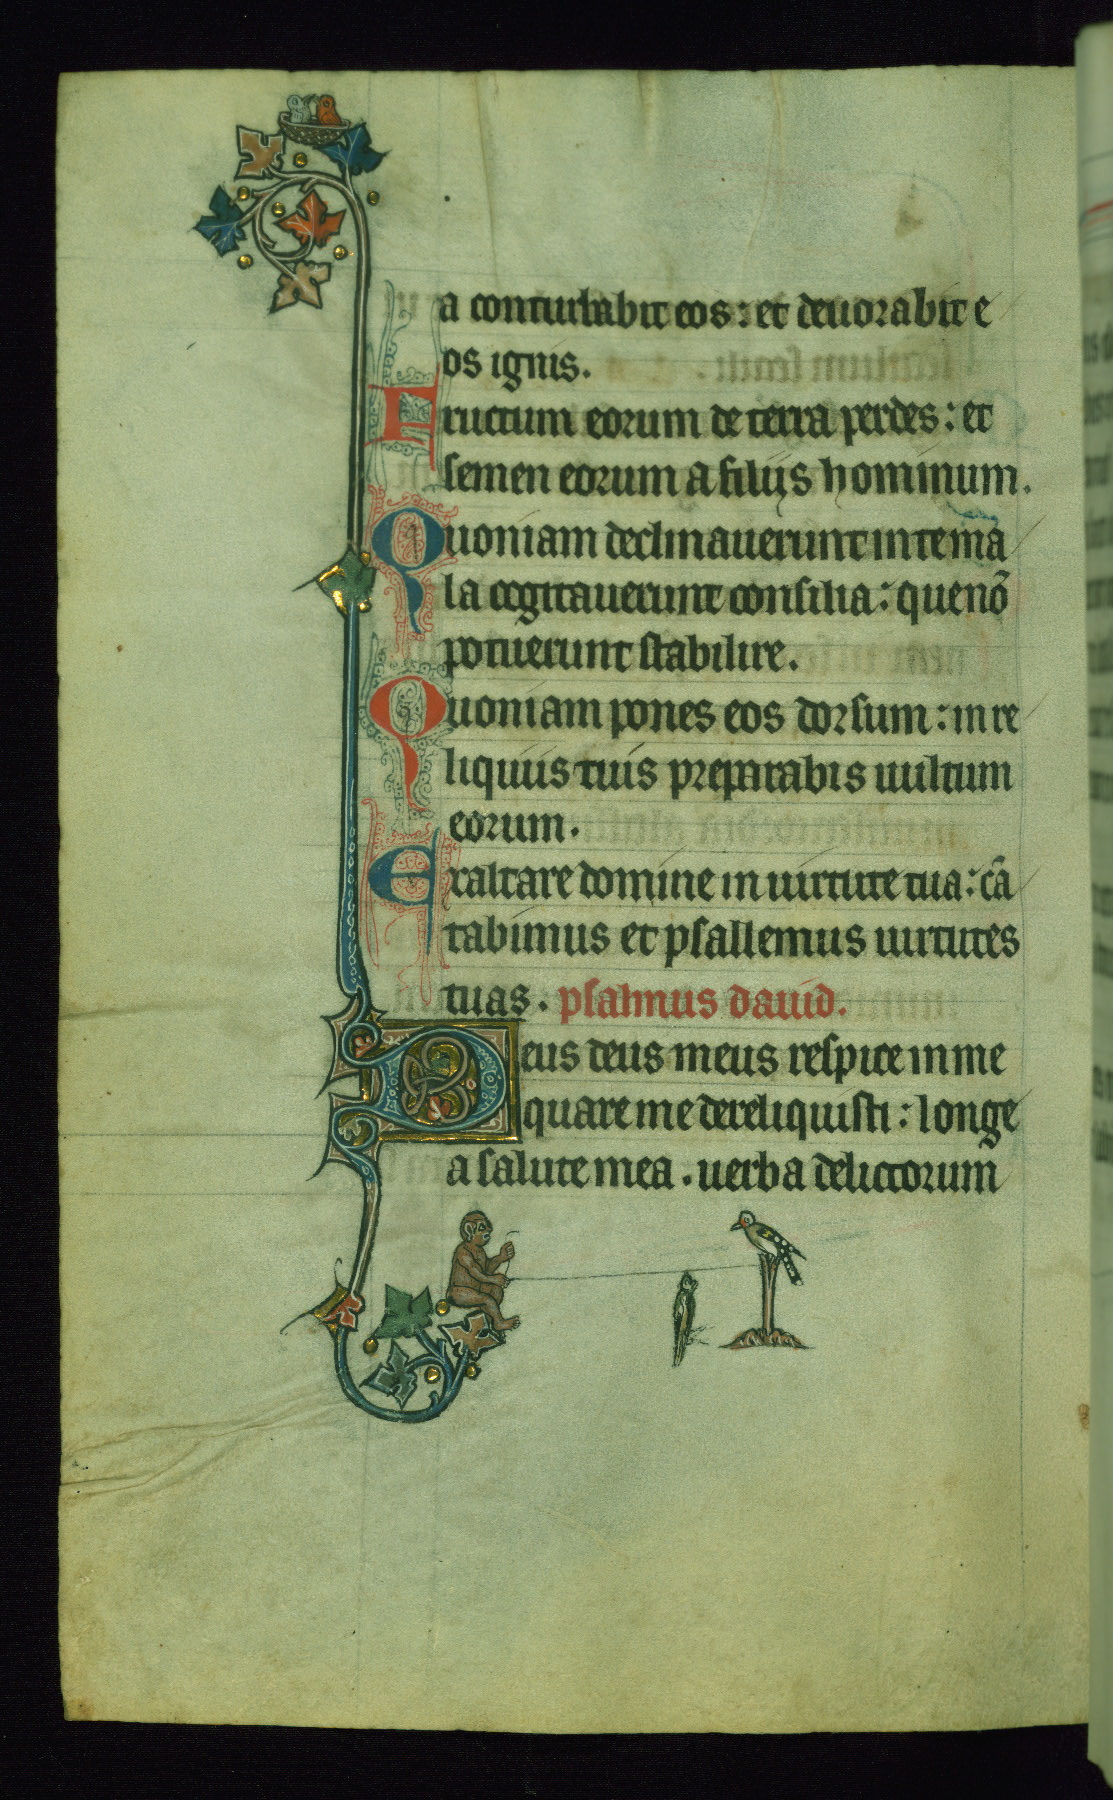 a conturbabit eos: et deuorabit e
os ignis.
Fructum eorum de terra perdes: et
semen eorum a filijs hominum.
Quoniam declinauerunt in te ma
la cogitauerunt consilia: que nō
potuerunt stabilire.
Quoniam pones eos dorsum: in re
liquiis tuis preparabis uultum
eorum.
Exaltare domine in uirtute tua: cā
tabimus et psallemus uirtutes
tuas. psalmus dauid.
Deus deus meus respice in me
quare me dereliquisti: longe
a salute mea. uerba delictorum